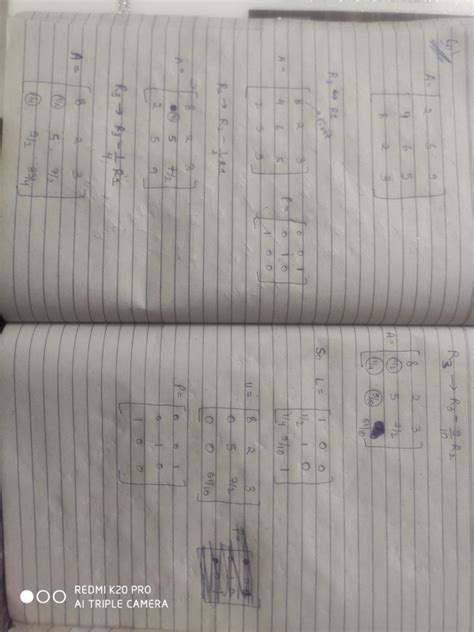 A =
2 5 9
4 6 5
8 2 3
R1 ↔ R3
pivot
A =
8 2 3
4 6 5
2 5 9
P =
0 0 1
0 1 0
1 0 0
R2 → R2 - 1/2 R1
A =
8 2 3
5 7/2
2 5 9
R3 → R3 - 1/4 R1
A =
8 2 3
1/2 5 7/2
1/4 9/2 33/4
R3 → R3 - 9/10 R2
A =
8 2 3
1/2 5 7/2
1/4 9/10 51/10
So L =
1 0 0
1/2 1 0
1/4 9/10 1
U =
8 2 3
0 5 7/2
0 0 51/10
P =
0 0 1
0 1 0
1 0 0
REDMI K20 PRO
AI TRIPLE CAMERA